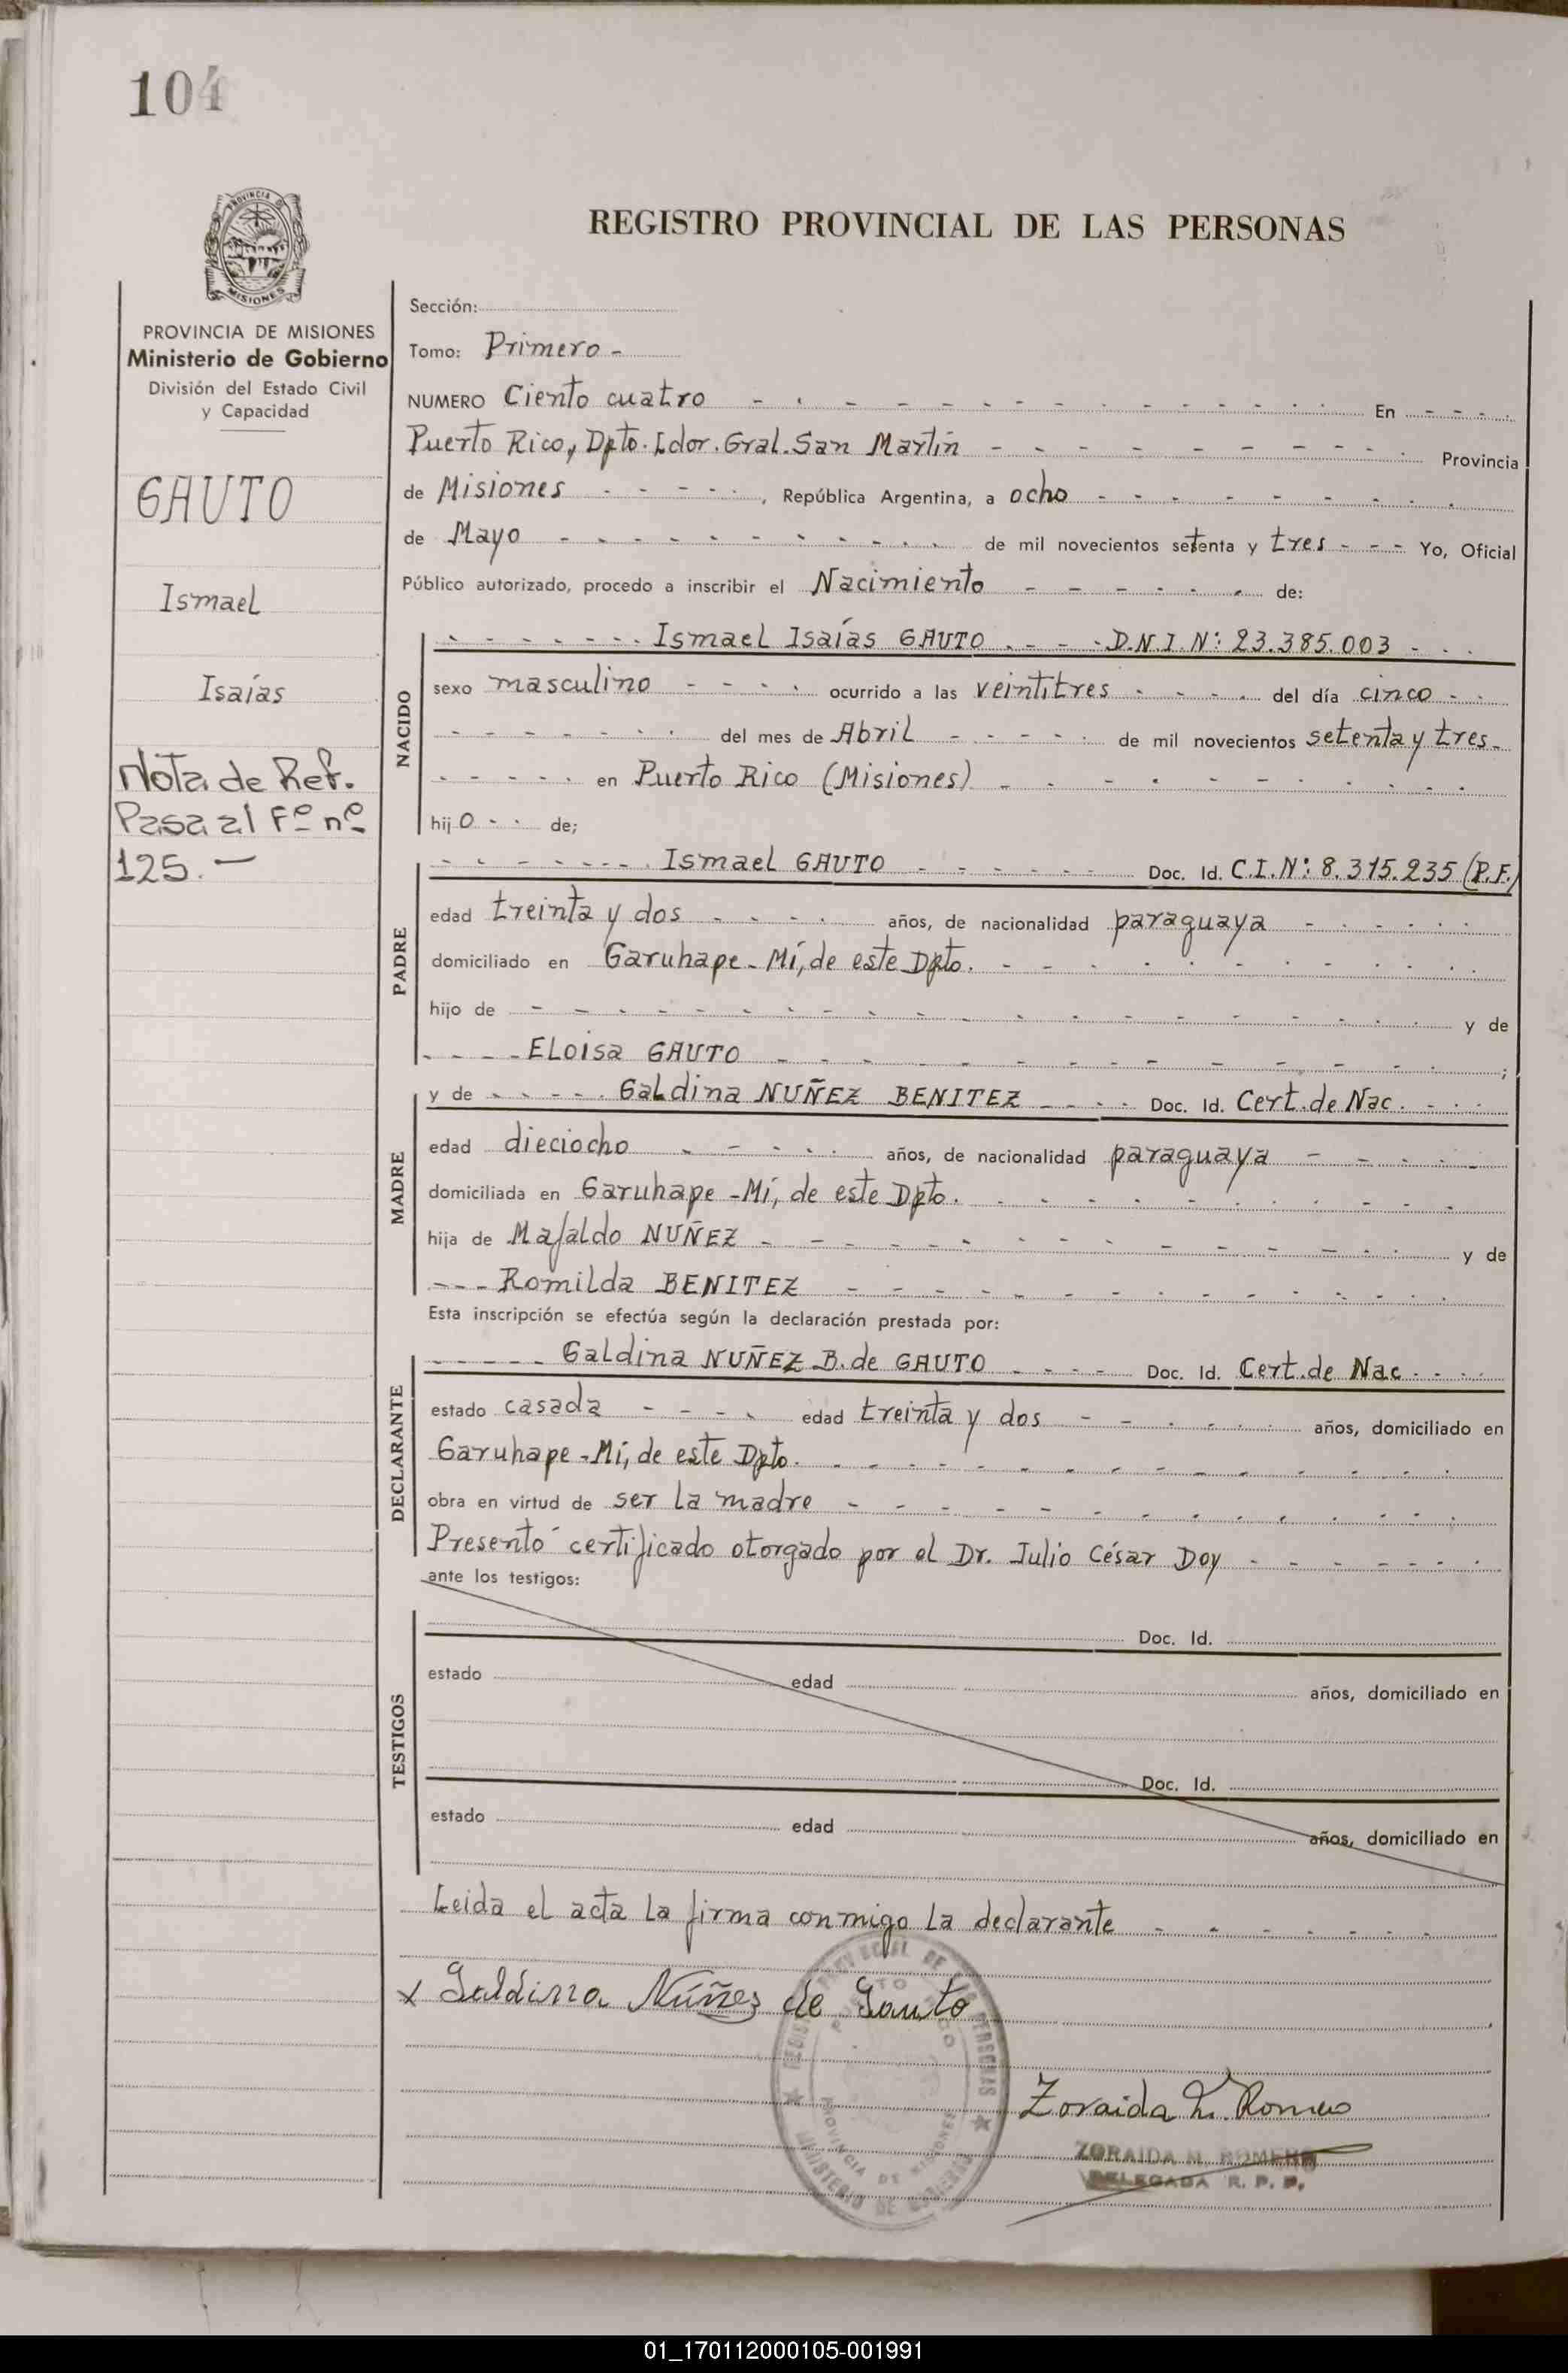 104
PROVINCIA DE
MISIONES
REGISTRO PROVINCIAL DE LAS PERSONAS
PROVINCIA DE MISIONES
Ministerio de Gobierno
División del Estado Civil
y Capacidad
GAUTO
Ismael
Isaías
Nota de Ref.
Pasa al Fº nº
125.-
Sección:
Tomo: Primero -
NUMERO Ciento cuatro - - - En - - -
Puerto Rico, Dpto. Ldor. Gral. San Martín - - - Provincia
de Misiones - - - , República Argentina, a ocho - - -
de Mayo - - - de mil novecientos setenta y tres - - - Yo, Oficial
Público autorizado, procedo a inscribir el Nacimiento - - - de:
NACIDO
- - - Ismael Isaías GAUTO - - - D.N.I. Nº: 23.385.003 - - -
sexo masculino - - - ocurrido a las veintitres - - - del día cinco - -
- - - del mes de Abril - - - de mil novecientos setenta y tres -
- - - en Puerto Rico (Misiones) - - -
hijo - - de;
PADRE
- - - Ismael GAUTO - - - Doc. Id. C.I. Nº: 8.315.235 (P.F.)
edad treinta y dos - - - años, de nacionalidad paraguaya - - -
domiciliado en Garuhape-Mí, de este Dpto. - - -
hijo de - - - y de
- - - Eloisa GAUTO - - - ;
MADRE
y de - - - Galdina NUÑEZ BENITEZ - - - Doc. Id. Cert. de Nac. - - -
edad dieciocho - - - años, de nacionalidad paraguaya - - -
domiciliada en Garuhape-Mí, de este Dpto. - - -
hija de Mafaldo NUÑEZ - - - y de
- - - Romilda BENITEZ - - -
Esta inscripción se efectúa según la declaración prestada por:
DECLARANTE
- - - Galdina NUÑEZ B. de GAUTO - - - Doc. Id. Cert. de Nac - - -
estado casada - - - edad treinta y dos - - - años, domiciliado en
Garuhape-Mí, de este Dpto. - - -
obra en virtud de ser la madre - - -
Presentó certificado otorgado por el Dr. Julio César Doy - - -
ante los testigos:
TESTIGOS
Doc. Id.
estado edad años, domiciliado en
Doc. Id.
estado edad años, domiciliado en
Leida el acta la firma conmigo la declarante - - -
x Galdina Núñez de Gauto
REGISTRO PROVINCIAL DE LAS PERSONAS
PUERTO RICO
PROVINCIA DE MISIONES
MINISTERIO DE GOBIERNO
Zoraida N. Romero
ZORAIDA N. ROMERO
DELEGADA R. P. P.
01_170112000105-001991